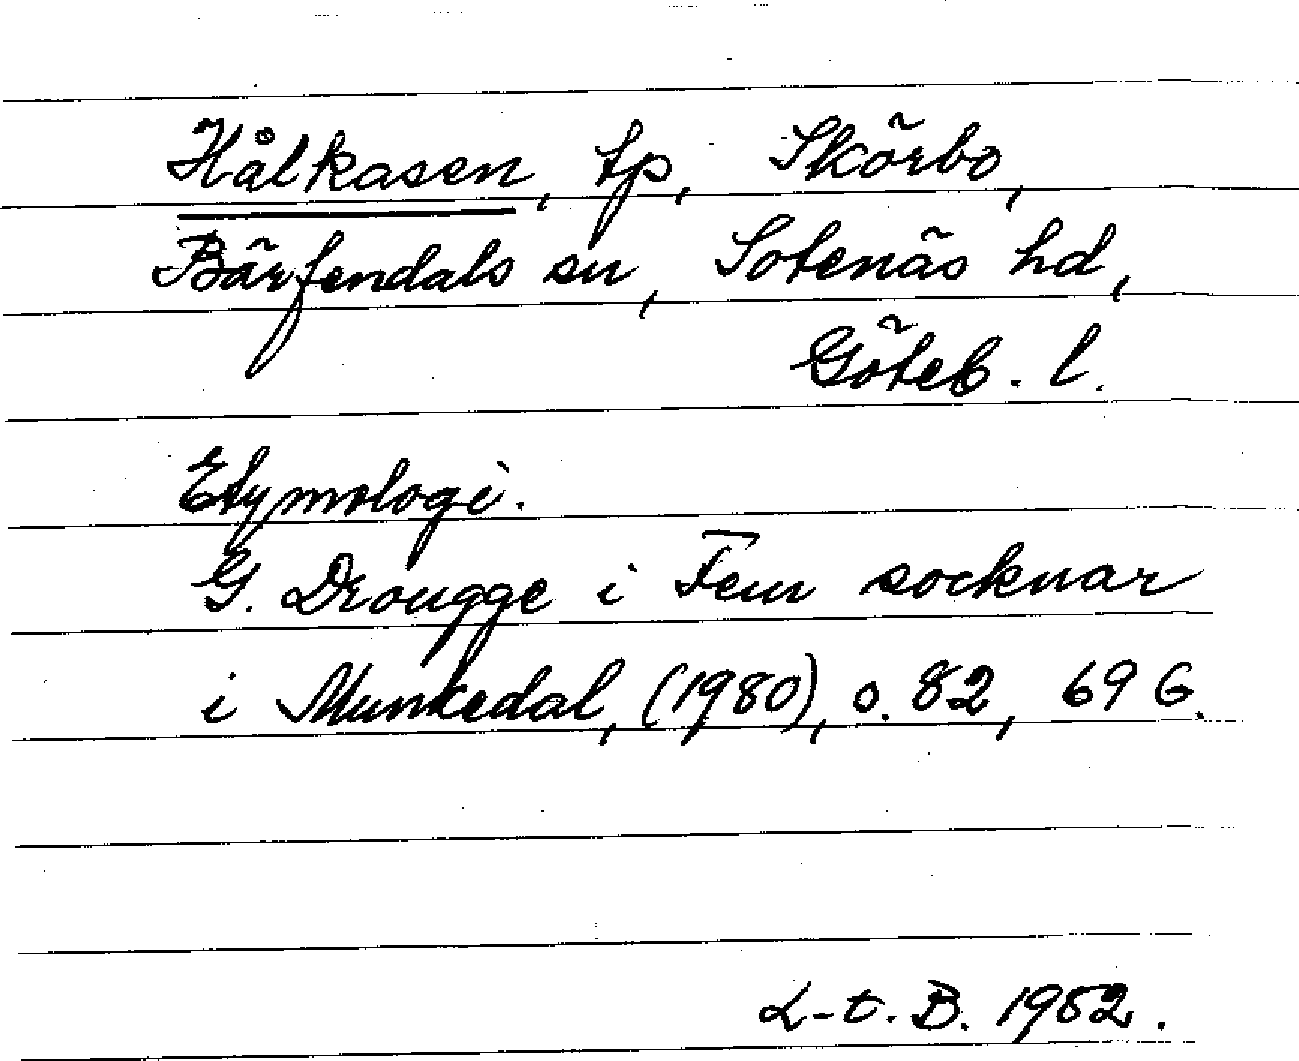 Hålkasen, tp, Skörbo,
Bärfendals sn, Sotenäs hd,
Göteb. l.
Etymologi.
G. Drougge i Fem socknar
i Munkedal, (1980), s. 82, 696.
L-t. B. 1982.